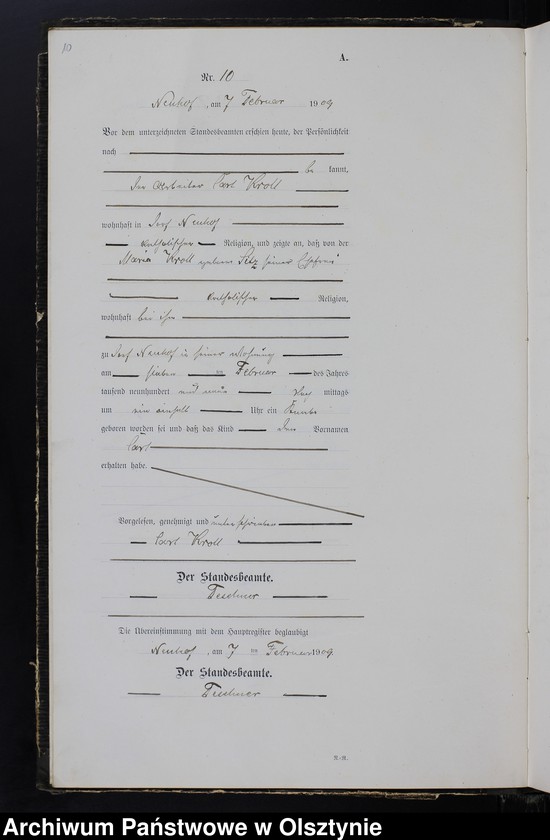 10
A.
Nr. 10
Neuhof, am 7 Februar 1909
Vor dem unterzeichneten Standesbeamten erschien heute, der Persönlichkeit
nach
be kannt,
der Arbeiter Carl Kroll
wohnhaft in Dorf Neuhof
katholischer Religion, und zeigte an, daß von der
Maria Kroll geborne seiner Ehefrau
katholischer Religion,
wohnhaft bei ihm
zu Dorf Neuhof in seiner Wohnung
am sieben ten Februar des Jahres
tausend neunhundert und neun Vor mittags
um ein einhalb Uhr ein Knabe
geboren worden sei und daß das Kind den Vornamen
Carl
erhalten habe.
Vorgelesen, genehmigt und unterschrieben
Carl Kroll
Der Standesbeamte.
Teschner
Die Übereinstimmung mit dem Hauptregister beglaubigt
Neuhof, am 7 ten Februar 1909
Der Standesbeamte.
Teschner
R.-R.
Archiwum Państwowe w Olsztynie